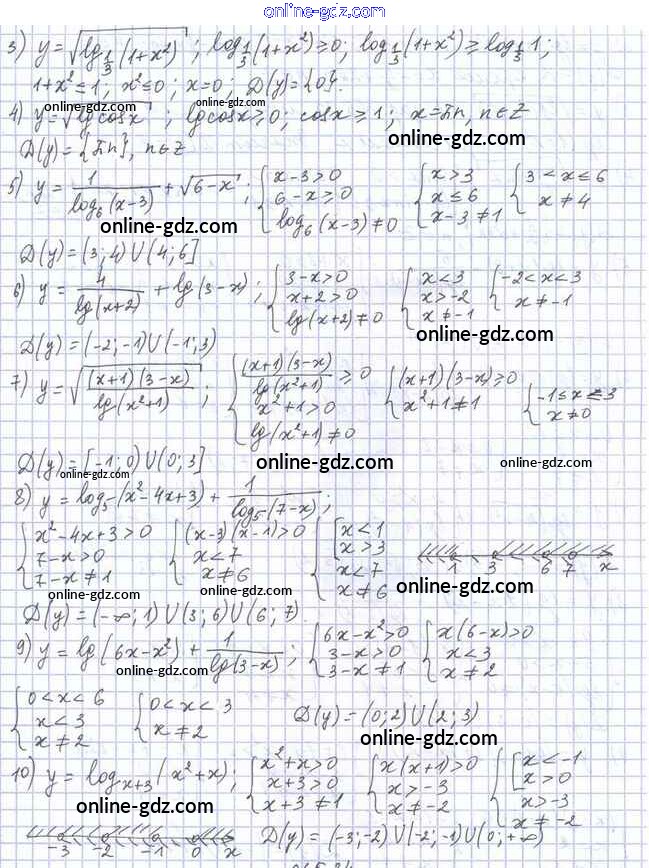 online-gdz.com
3) y = √(lg 1/3 (1+x²)) ; log 1/3 (1+x²) ≥ 0; log 1/3 (1+x²) ≥ log 1/3 1;
1+x² ≤ 1; x² ≤ 0; x = 0; D(y) = {0}.
online-gdz.com
4) y = √(lg cosx) ; lg cosx ≥ 0; cosx ≥ 1; x = πn, n∈Z
online-gdz.com
D(y) = {πn}, n∈Z
5) y = 1/(log₆(x-3)) + √(6-x) ; { x-3>0 6-x≥0 log₆(x-3)≠0 { x>3 x≤6 x-3≠1 { 3<x≤6 x≠4
online-gdz.com
D(y) = (3;4)∪(4;6]
6) y = 4/(lg(x+2)) + lg(3-x) ; { 3-x>0 x+2>0 lg(x+2)≠0 { x<3 x>-2 x≠-1 { -2<x<3 x≠-1
online-gdz.com
online-gdz.com
D(y) = (-2;-1)∪(-1;3)
7) y = √((x+1)(3-x)/lg(x²+1)) ; { (x+1)(3-x)/lg(x²+1) ≥ 0 x²+1>0 lg(x²+1)≠0 { (x+1)(3-x)≥0 x²+1≠1 { -1≤x≤3 x≠0
D(y) = [-1;0)∪(0;3]
online-gdz.com
online-gdz.com
online-gdz.com
8) y = log₅(x²-4x+3) + 1/(log₅(7-x)) ;
{ x²-4x+3>0 7-x>0 7-x≠1 { (x-3)(x-1)>0 x<7 x≠6 { [ x<1 x>3 x<7 x≠6 1 3 6 7 x
online-gdz.com
online-gdz.com
online-gdz.com
D(y) = (-∞;1)∪(3;6)∪(6;7).
9) y = lg(6x-x²) + 1/(lg(3-x)) ; { 6x-x²>0 3-x>0 3-x≠1 { x(6-x)>0 x<3 x≠2
online-gdz.com
{ 0<x<6 x<3 x≠2 { 0<x<3 x≠2 D(y) = (0;2)∪(2;3)
online-gdz.com
10) y = log x+3 (x²+x) ; { x²+x>0 x+3>0 x+3≠1 { x(x+1)>0 x>-3 x≠-2 { [ x<-1 x>0 x>-3 x≠-2
online-gdz.com
online-gdz.com
-3 -2 -1 0 x D(y) = (-3;-2)∪(-2;-1)∪(0;+∞)